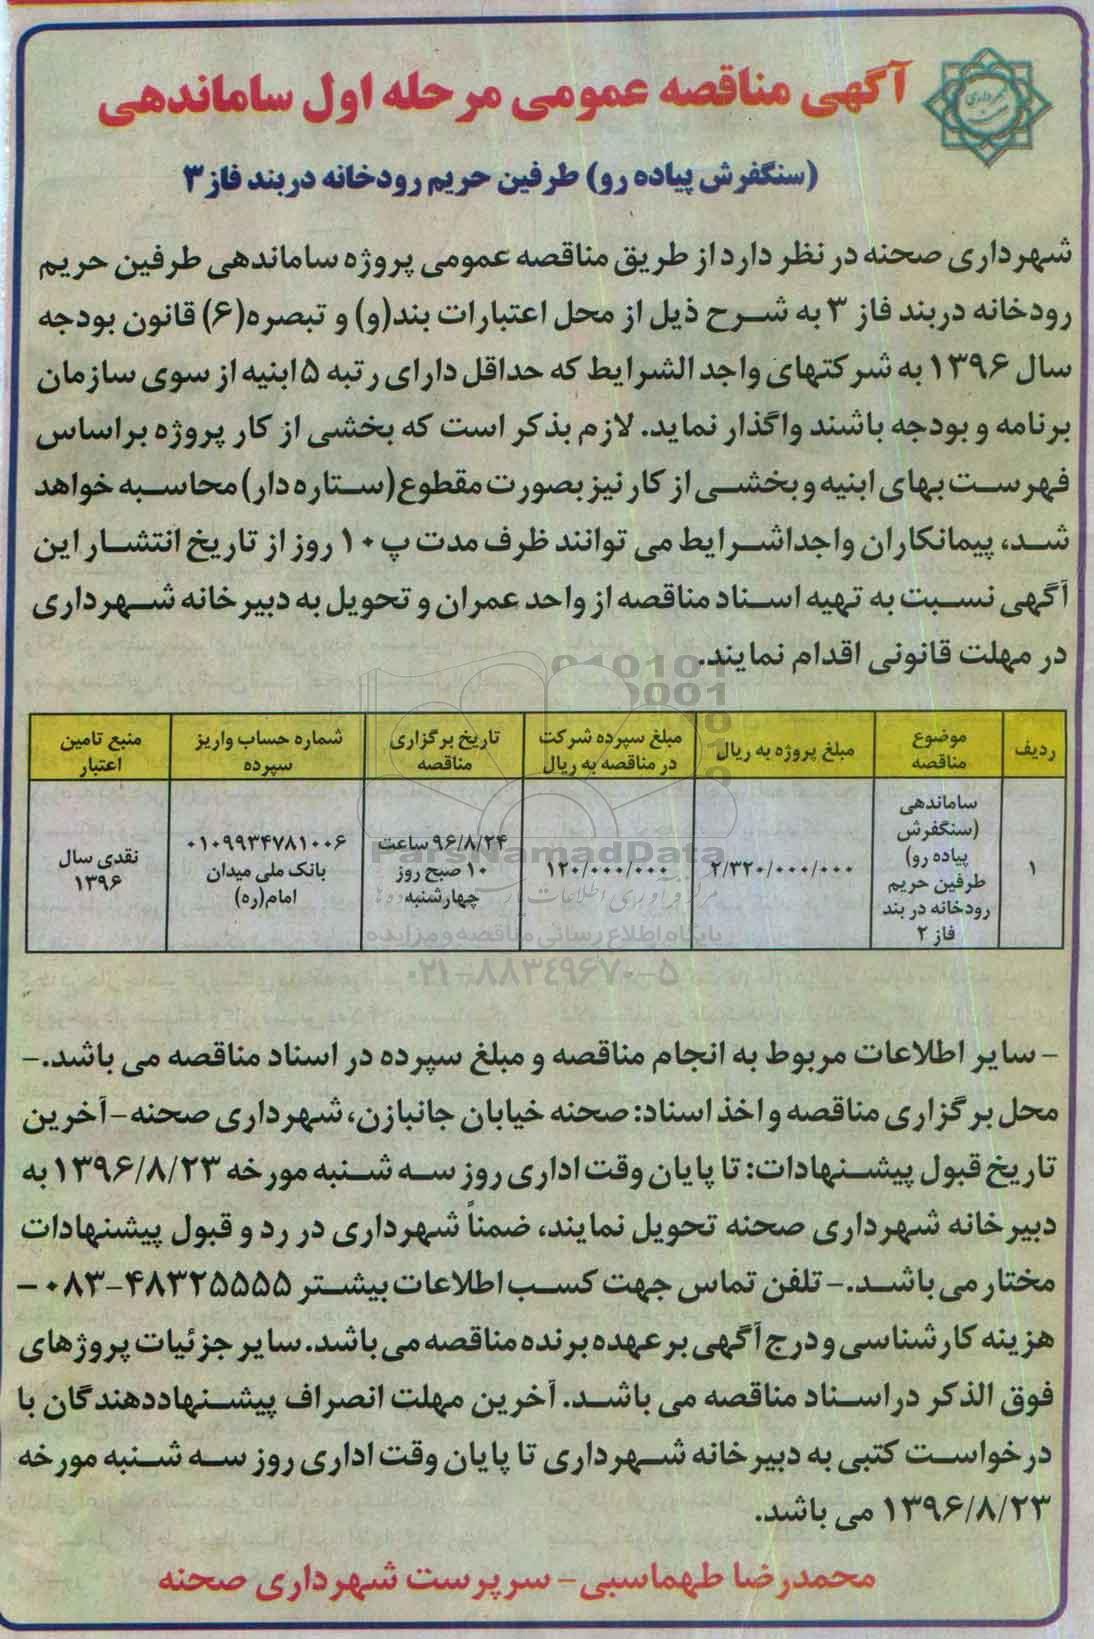 آگهی مناقصه عمومی مرحله اول ساماندهی
(سنگفرش پیاده رو) طرفین حریم رودخانه دربند فاز ۳
شهرداری صحنه در نظر دارد از طریق مناقصه عمومی پروژه ساماندهی طرفین حریم
رودخانه دربند فاز ۳ به شرح ذیل از محل اعتبارات بند(و) و تبصره(۶) قانون بودجه
سال ۱۳۹۶ به شرکتهای واجد الشرایط که حداقل دارای رتبه ۵ ابنیه از سوی سازمان
برنامه و بودجه باشند واگذار نماید. لازم بذکر است که بخشی از کار پروژه براساس
فهرست بهای ابنیه و بخشی از کار نیز بصورت مقطوع(ستاره دار) محاسبه خواهد
شد، پیمانکاران واجداشرایط می توانند ظرف مدت پ۱۰ روز از تاریخ انتشار این
آگهی نسبت به تهیه اسناد مناقصه از واحد عمران و تحویل به دبیرخانه شهرداری
در مهلت قانونی اقدام نمایند.
ردیف | موضوع مناقصه | مبلغ پروژه به ریال | مبلغ سپرده شرکت در مناقصه به ریال | تاریخ برگزاری مناقصه | شماره حساب واریز سپرده | منبع تامین اعتبار
۱ | ساماندهی (سنگفرش پیاده رو) طرفین حریم رودخانه در بند فاز ۲ | ۲/۳۲۰/۰۰۰/۰۰۰ | ۱۲۰/۰۰۰/۰۰۰ | ۹۶/۸/۲۴ ساعت ۱۰ صبح روز چهارشنبه | ۰۱۰۹۹۳۴۷۸۱۰۰۶ بانک ملی میدان امام(ره) | نقدی سال ۱۳۹۶
ParsNamadData
پایگاه اطلاع رسانی مناقصه و مزایده
۰۲۱-۸۸۳۴۹۶۷۰-۵
- سایر اطلاعات مربوط به انجام مناقصه و مبلغ سپرده در اسناد مناقصه می باشد.-
محل برگزاری مناقصه و اخذ اسناد: صحنه خیابان جانبازن، شهرداری صحنه -آخرین
تاریخ قبول پیشنهادات: تا پایان وقت اداری روز سه شنبه مورخه ۱۳۹۶/۸/۲۳ به
دبیرخانه شهرداری صحنه تحویل نمایند، ضمناً شهرداری در رد و قبول پیشنهادات
مختار می باشد.- تلفن تماس جهت کسب اطلاعات بیشتر ۴۸۳۲۵۵۵۵-۰۸۳ -
هزینه کارشناسی و درج آگهی بر عهده برنده مناقصه می باشد. سایر جزئیات پروژهای
فوق الذکر در اسناد مناقصه می باشد. آخرین مهلت انصراف پیشنهاددهندگان با
درخواست کتبی به دبیرخانه شهرداری تا پایان وقت اداری روز سه شنبه مورخه
۱۳۹۶/۸/۲۳ می باشد.
محمدرضا طهماسبی- سرپرست شهرداری صحنه